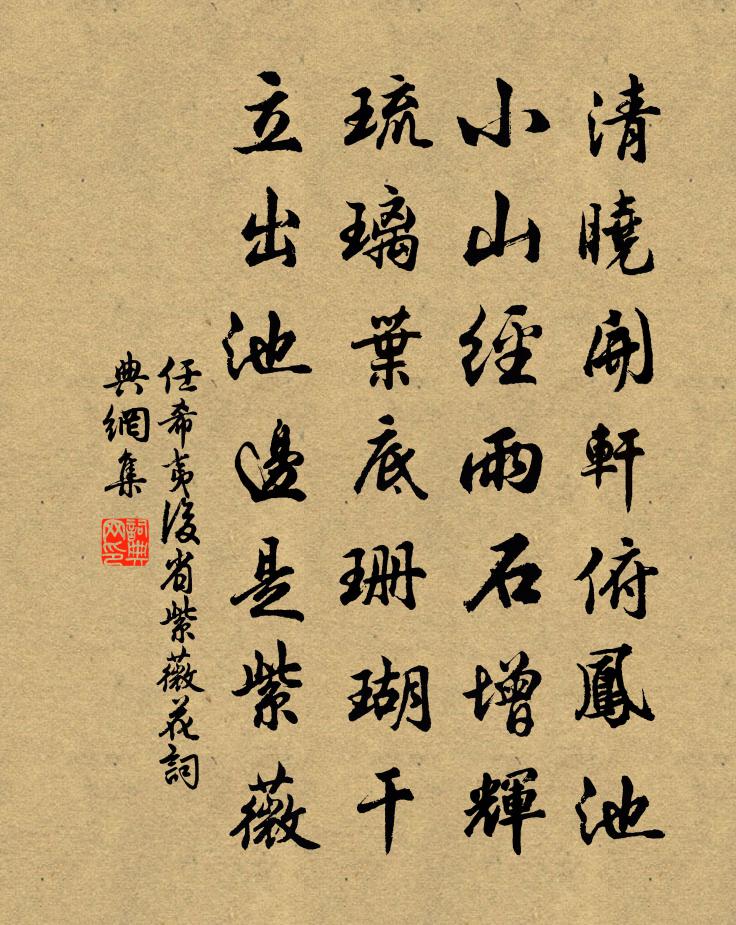 清曉開軒俯鳳池
小山經雨石增輝
琉璃葉底珊瑚干
立出池邊是紫薇
任希夷後省紫薇花詞
典網集
詞典网印